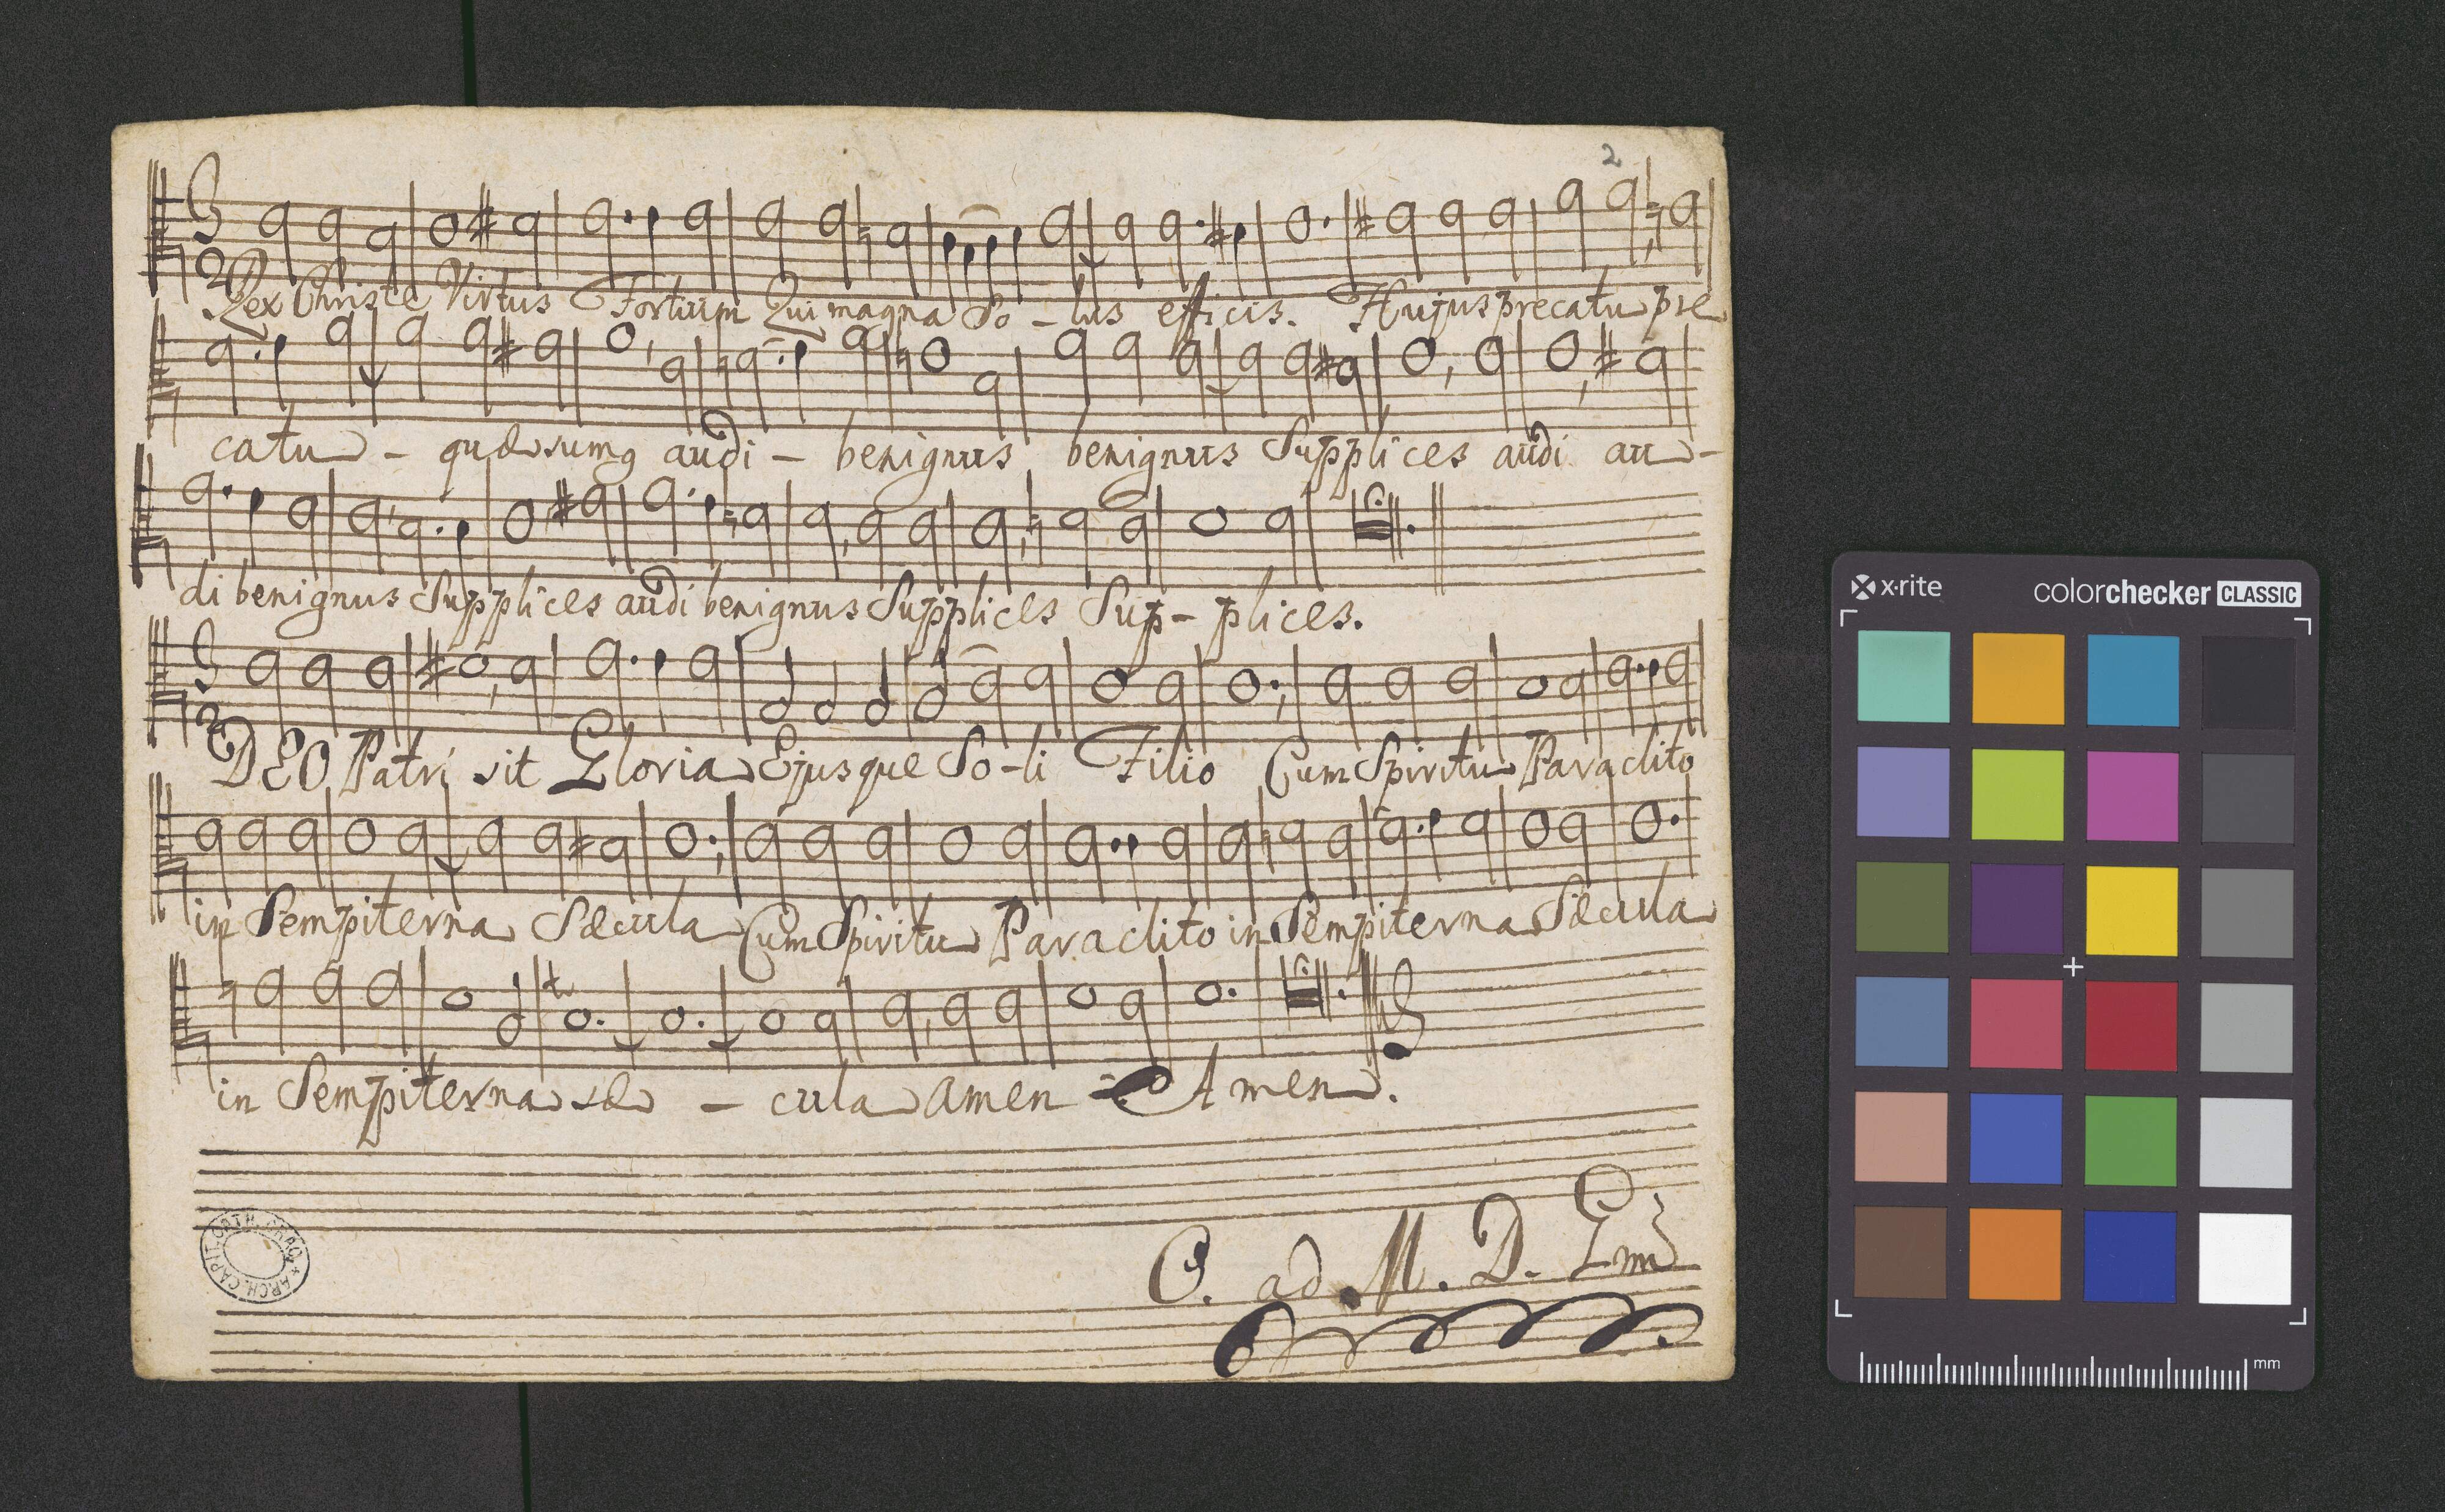 2
Rex Christe Virtus Fortium Qui magna So - lus efficis. Hujus precatu pre
catu - quæsumg audi - benignus benignus Supplices audi au -
di benignus Supplices audi benignus Supplices Sup - plices.
DEO Patri sit Gloria Ejusque So - li Filio Cum Spiritu Paraclito
in Sempiterna Sæcula Cum Spiritu Paraclito in Sempiterna Sæcula
in Sempiterna sæ - cula amen - Amen.
O. ad M. D. G.
ARCH. CAPIT. CATH. CRAC.
x·rite
colorchecker CLASSIC
mm